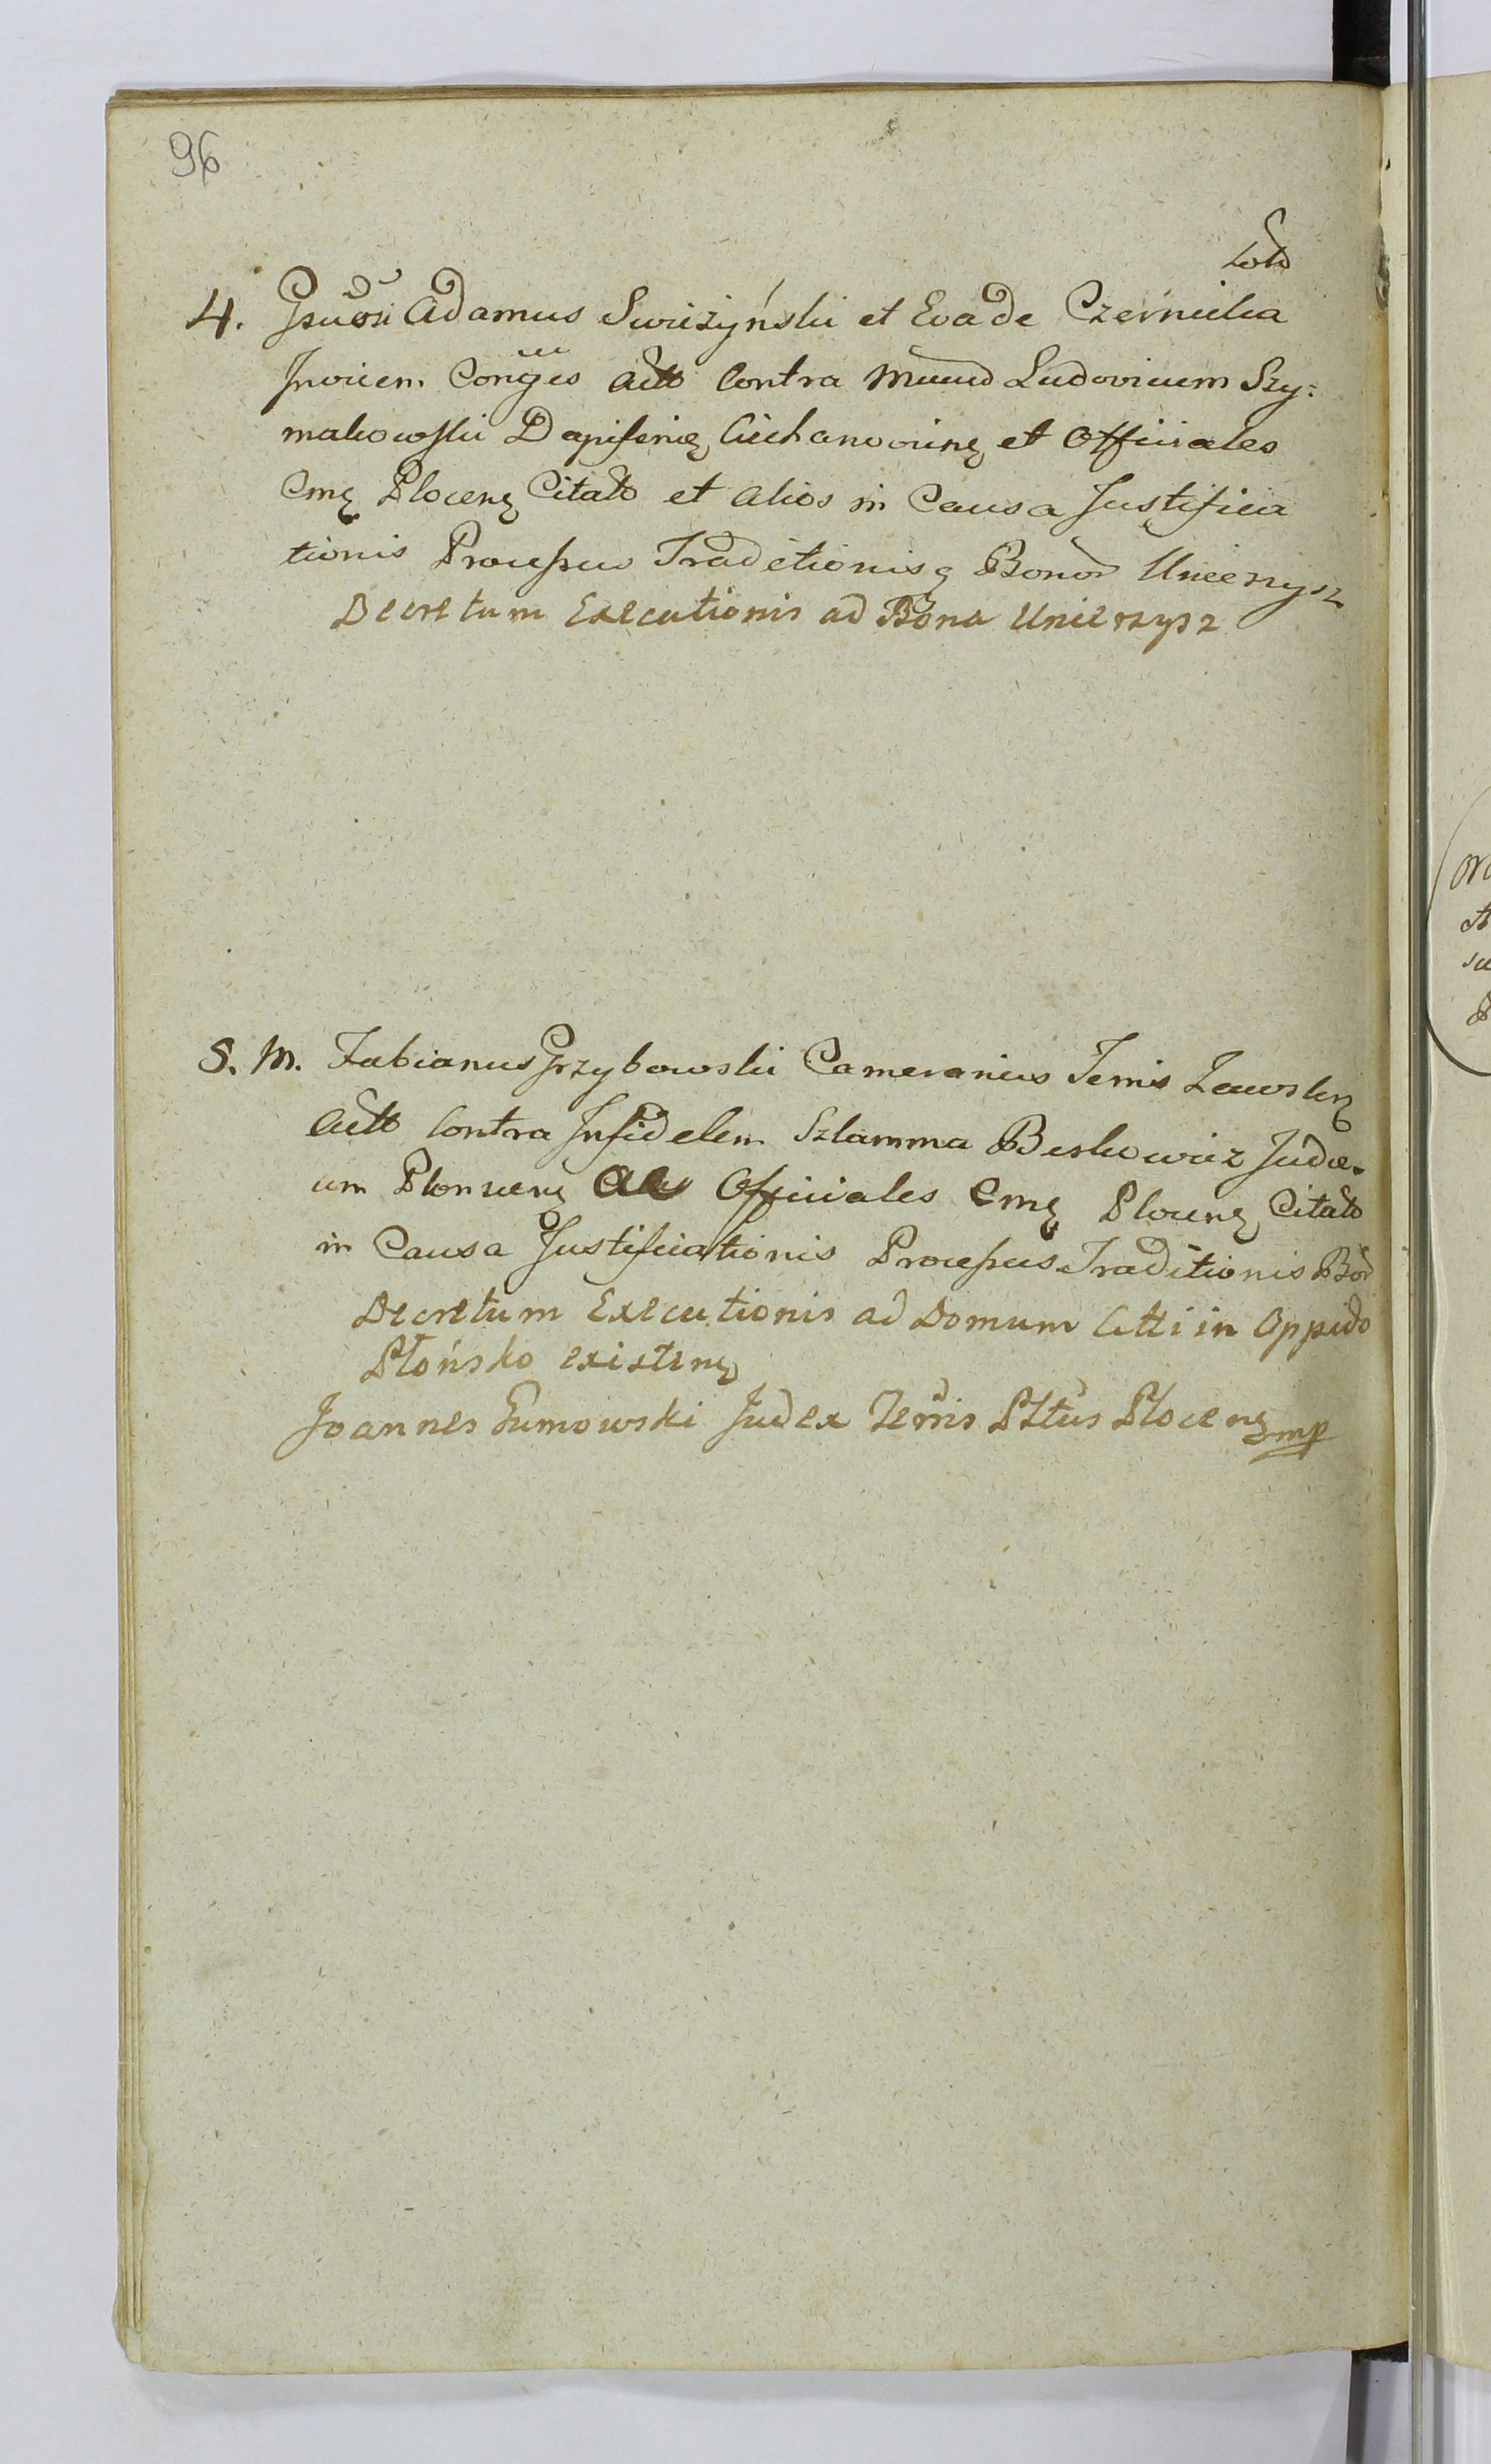 96
4. Gsuosi Adamus Swiezyński et Eva de Czernicka
Invicem Conjges Actts Contra Mcum Ludovicum Szy:
makowski Dapiferię Ciechanovinę et Officiales
Cmę Plocenę Citats et Alios in Causa Justifica
tionis Processus Traditionisq Bonor Unierzysz
Decretum Executionis ad Bona Unierzysz
5. M. Fabianus Grzybowski Camerarius Terris Zawskrę
Actts Contra Infidelem Szlamma Berkowicz Judæ-
um Plonscenę ac Officiales Cmę Plocenę Citats
in Causa Justificationis Processus Traditionis Bor
Decretum Executionis ad Domum Citti in Oppido
Płońsko existenę
Joannes Sumowski Judex Terris Pltus Plocenę mp